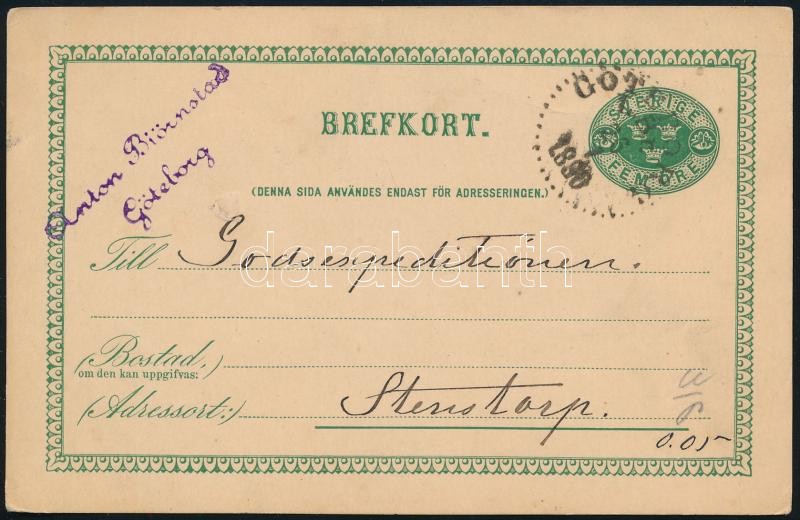 Anton Björnstad
Göteborg
BREFKORT.
GÖT
1890
SVERIGE
FEM ÖRE
(DENNA SIDA ANVÄNDES ENDAST FÖR ADRESSERINGEN.)
Till Godsexpeditionen.
darabanth.com
(Bostad,
om den kan uppgifvas:)
(Adressort:) Stenstorp.
0.05